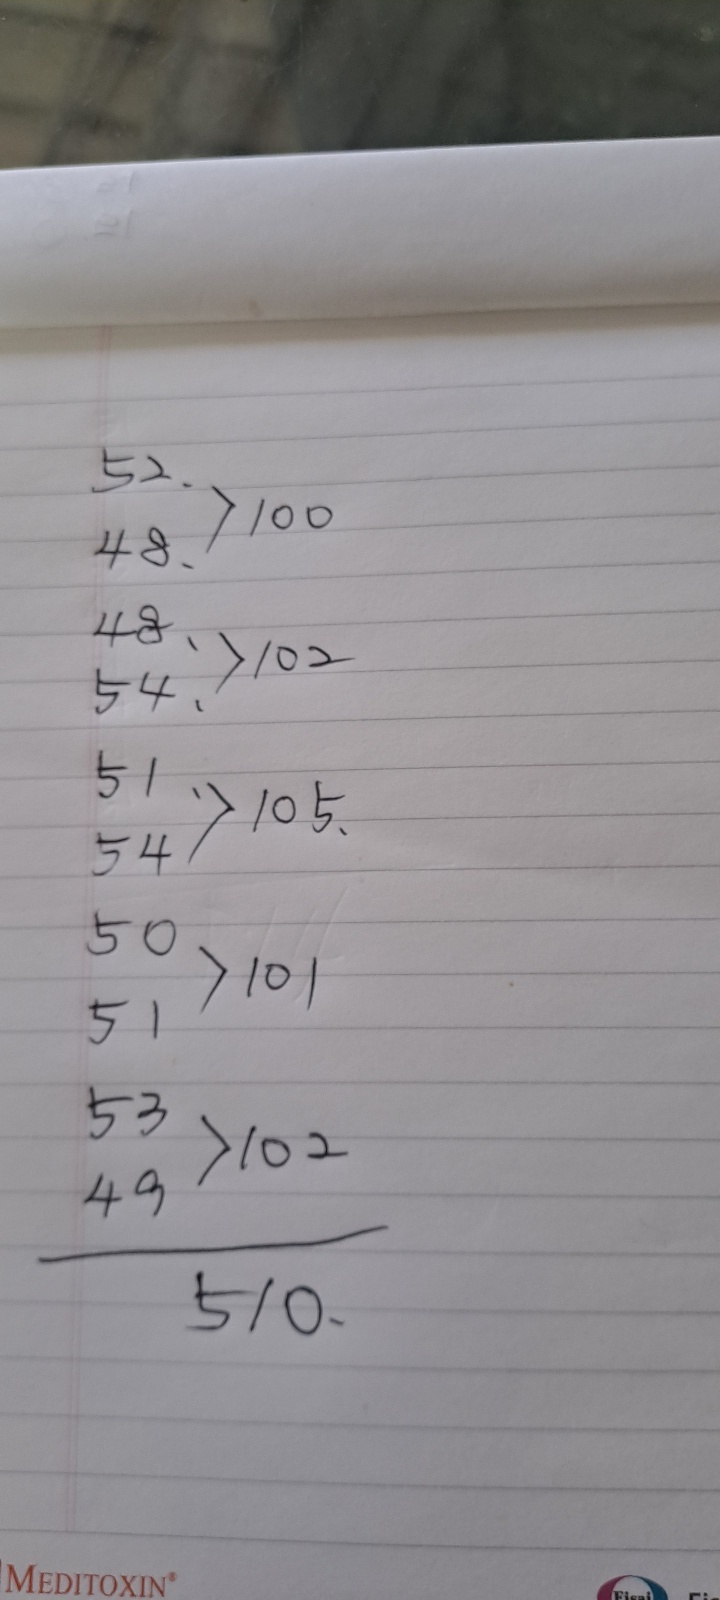 52.
48. > 100
48.
54. > 102
51
54 > 105.
50
51 > 101
53
49 > 102
510.
MEDITOXIN®
Eisai